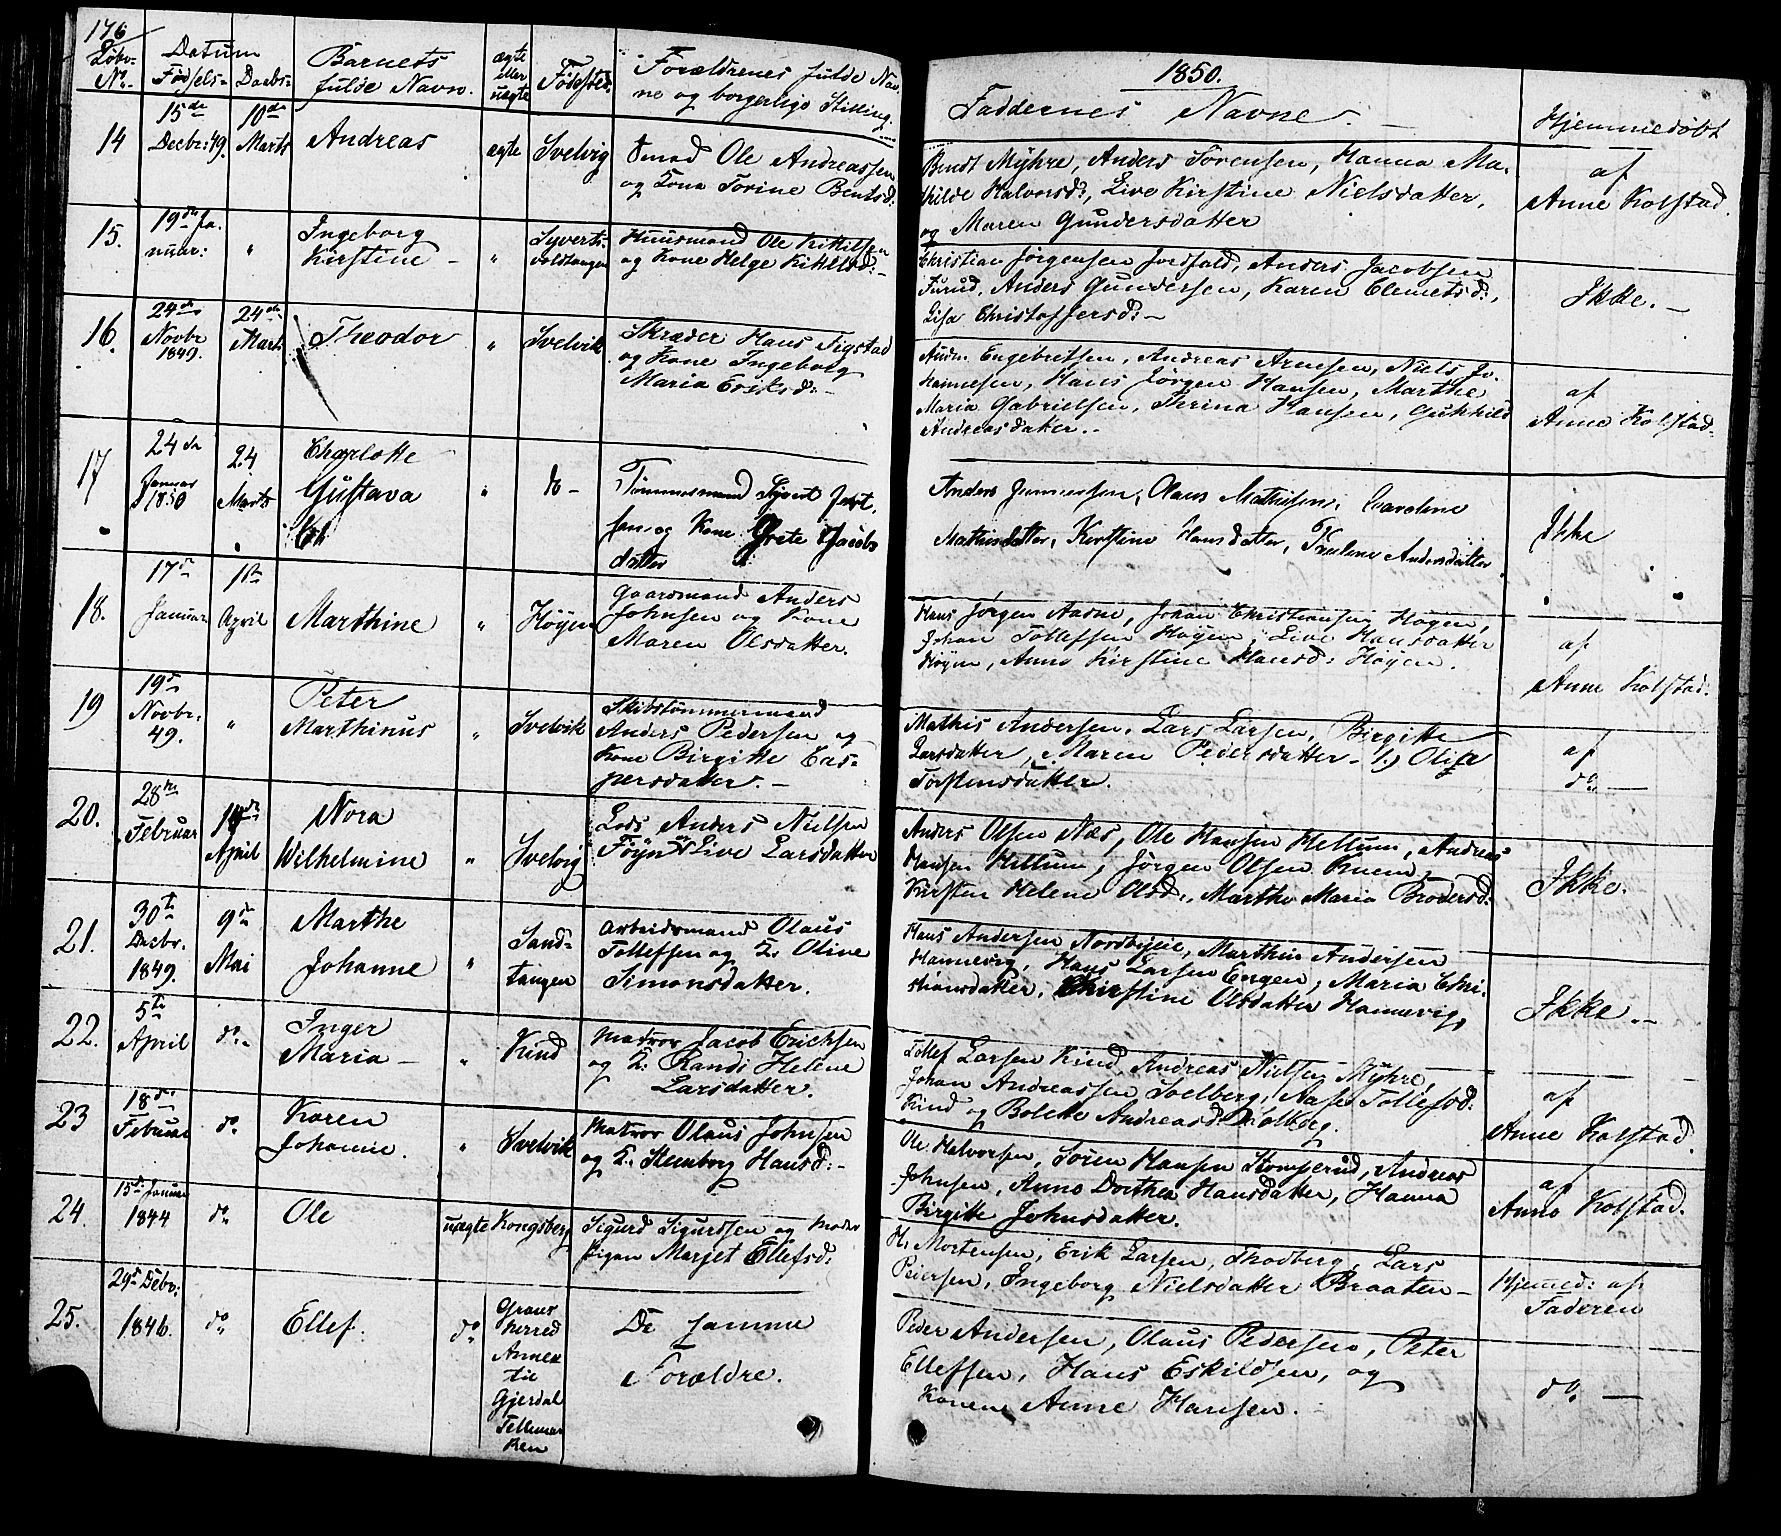 176
Løbe- No.
Datum
Fødsels- Daabs-
Barnets
fulde Navn.
ægte
eller
uægte
Fødested.
Forældrenes fulde Nav-
ne og borgerlige Stilling.
1850.
Faddernes Navne.
Hjemmedøbt
14
15de
Decbr: 49.
10de
Marts
Andreas
ægte
Svelvig
Smed Ole Andreassen
og Kone Torine Bentsd:
Bendt Myhre, Anders Sørensen, Hanna Ma-
thilde Halvorsd:, Live Kirstine Nielsdatter,
og Maren Gundersdatter
af
Anne Kolstad.
15.
19de Ja-
nuar:
"
Ingeborg
Kirstine -
"
Syverts-
voldtangen
Huusmand Ole Kittilsen
og Kone Helge Kittilsd: -
Christian Jørgensen Jordfald, Anders Jacobsen
Furud, Anders Gundersen, Karen Clemetsd:,
Lisa Christoffersd: -
Ikke. -
16.
24de
Novbr
1849.
24de
Mart.
Theodor
"
Svelvik
Skræder Hans Tigstad
og Kone Ingeborg
Maria Eriksd: -
Engebretsen, Andreas Arnesen, Niels Jo-
hannesen, Hans Jørgen Hansen, Marthe
Maria Gabrielsen, Thrina Hansen,
Andreasdatter. -
af
Anne Kolstad.
17
24de
Januar
1850
24
Marts
Charlotte
Gustava
"
do -
Tømmermand Syvert
sen og Kone Grete Jacobs
datter
Anders Gunnersen, Olaus Mathisen, Caroline
Mathisdatter, Kirstine Hansdatter, Pauline Andersdatter.
Ikke
18.
17de
Januar
1ste
April
Marthine
"
Høyen
Gaardmand Anders
Johnsen og Kone
Maren Olsdatter.
Hans Jørgen Aasne, Johan Christiansen Høyen,
Johan Tollefsen Høyen, Live Hansdatter
Høyen, Anne Kirstine Hansd: Høyen.
af
Anne Kolstad:
19
19de
Novbr:
49.
"
Peter
Marthinus
"
Svelvik
Skibstømmermand
Anders Pedersen og
Kone Birgitte Cas-
persdatter. -
Mathis Andersen, Lars Larsen, Birgitte
Larsdatter, Maren Pedersdatter Olise
Torstensdatter.
af
do: -
20.
28de
Februar
April
Nora
Wilhelmine
"
Svelvig
Lods Anders Nielsen
Føyn & Live Larsdatter
Anders Olsen Næs, Ole Hansen Hellum, Andreas
Hansen Hellum, Jørgen Olsen Kuem,
Kirsten Helene Olsd:, Marthe Maria Brodersd:
Ikke.
21.
30te
Decbr.
1849.
9de
Mai
Marthe
Johanne
"
Sand-
tangen
Arbeidsmand Olaus
Tollefsen og K. Oline
Simonsdatter.
Hans Andersen Nordbyeie, Marthin Andersen
Hannevig, Hans Larsen Engen, Maria Chri-
stiansdatter, Christine Olsdatter Hannevig,
Ikke. -
22.
5te
April
do:
Inger
Maria -
"
Kind
Matros Jacob Erichsen
og K: Randi Helene
Larsdatter.
Tollef Larsen Kind, Andreas Nielsen Myhre,
Johan Andreassen Solberg, Aase Tollefsd:
Kind og Bolette Andreasd: Solberg.
af
Anne Kolstad.
23
18de
Februar
do:
Karen
Johanne.
"
Svelvik
Matros Olaus Johnsen
og K. Steenborg Hansd: -
Ole Halvorsen, Søren Hansen Komperud, Andreas
Johnsen, Anne Dorthea Hansdatter, Hanna
Birgitte Johnsdatter.
af
Anne Kolstad.
24.
15de Januar
1844
do:
Ole
uægte
Kongsberg
Sigurd Sigurdsen og
Pigen Marjet Ellefsd:
H: Mortensen, Erik Larsen, Skodberg, Lars
Peiersen, Ingeborg Nielsdatter Braaten -
Hjemmed: af
Faderen
25.
29de Debr:
1846.
do:
Ellef.
do
Grans
Herred
Annex
til
Gjerdal
Tellemar
ken
De samme
Forældre.
Peder Andersen, Olaus Pedersen, Peter
Ellefsen, Hans Eskildsen, og
Konen Anne Hansen.
do: -